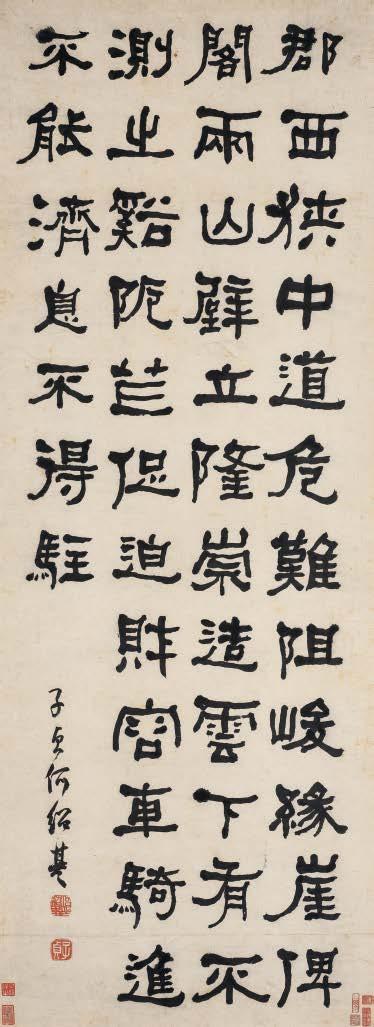 郡西狹中道危難阻峻緣崖俾
閣兩山壁立隆崇造雲下有不
測之谿阨芒促迫財容車騎進
不能濟息不得駐
子貞何紹基
子貞